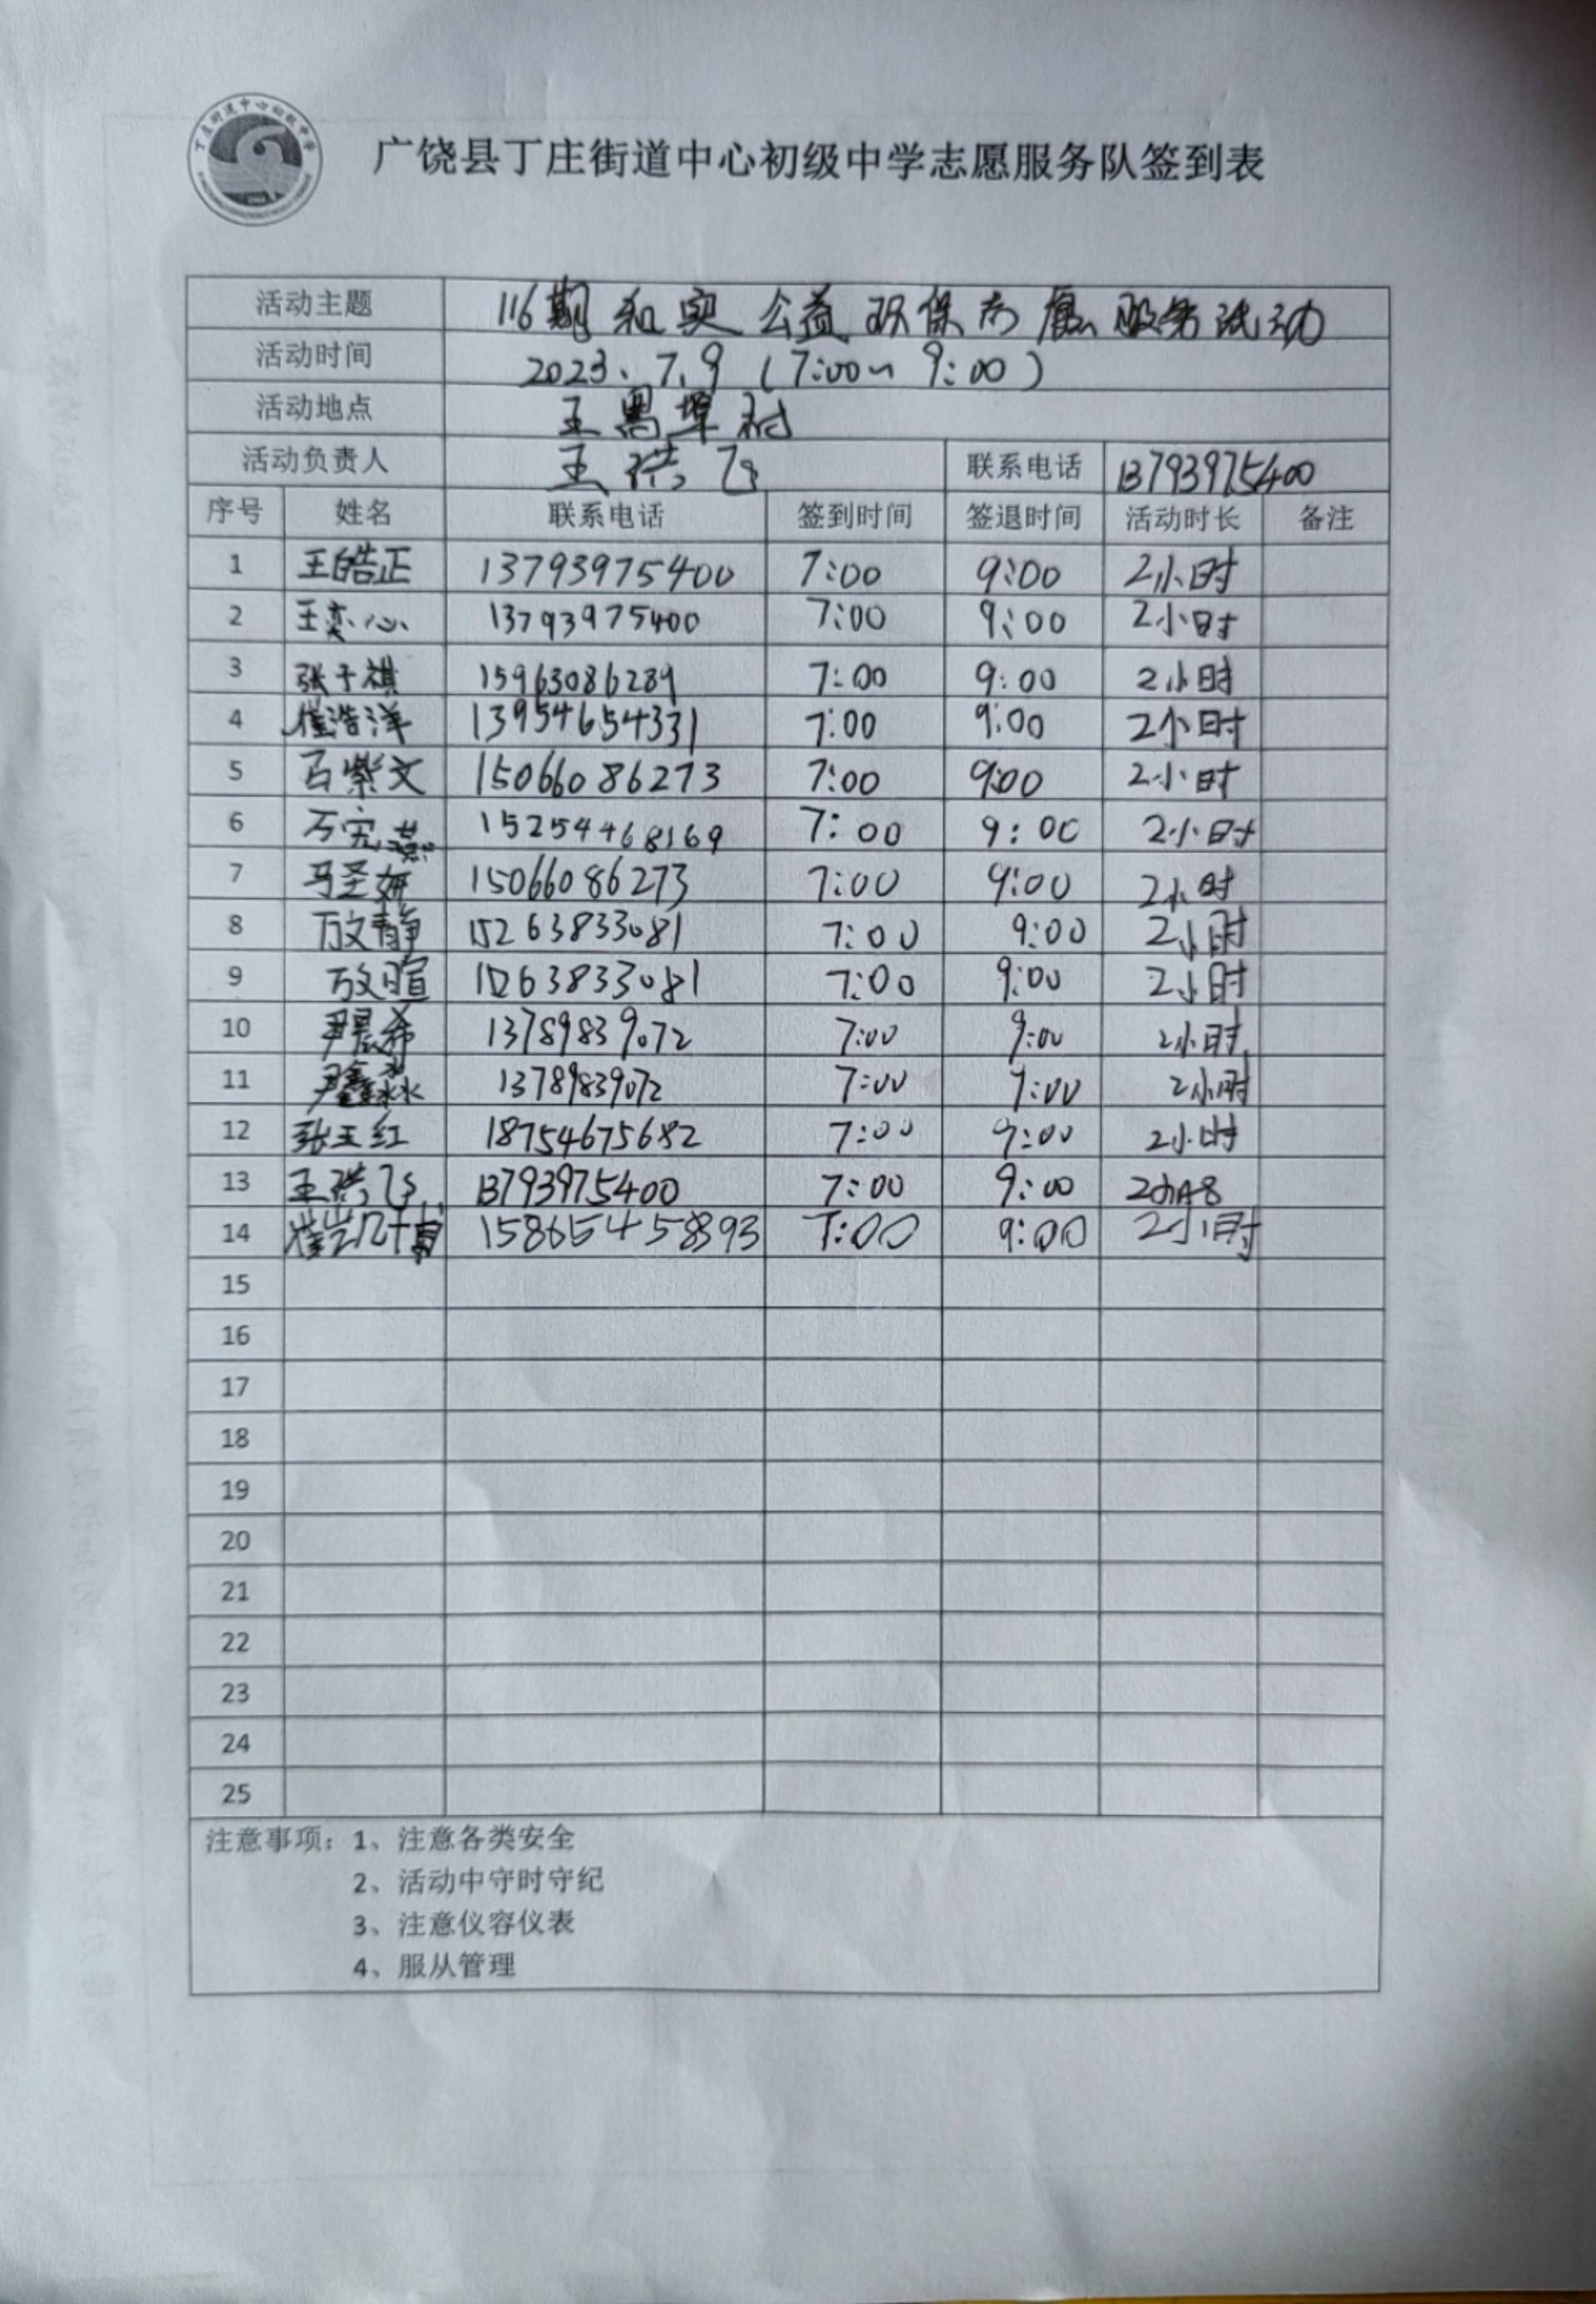 广饶县丁庄街道中心初级中学志愿服务队签到表
活动主题 116期和实公益环保志愿服务活动
活动时间 2023、7.9 (7:00~9:00)
活动地点 王署埠村
活动负责人 王洪飞 联系电话 13793975400
序号 姓名 联系电话 签到时间 签退时间 活动时长 备注
1 王皓正 13793975400 7:00 9:00 2小时
2 王奕心 13793975400 7:00 9:00 2小时
3 张子祺 15963086289 7:00 9:00 2小时
4 崔浩洋 13954654331 7:00 9:00 2小时
5 石紫文 15066086273 7:00 9:00 2小时
6 15254468169 7:00 9:00 2小时
7 马圣妍 15066086273 7:00 9:00 2小时
8 放静 15263833081 7:00 9:00 2小时
9 放暄 15263833081 7:00 9:00 2小时
10 尹晨希 13789839072 7:00 9:00 2小时
11 尹鑫淼 13789839072 7:00 9:00 2小时
12 张玉红 18754675682 7:00 9:00 2小时
13 王洪飞 13793975400 7:00 9:00 2小时
14 15865458893 7:00 9:00 2小时
15
16
17
18
19
20
21
22
23
24
25
注意事项：1、注意各类安全
2、活动中守时守纪
3、注意仪容仪表
4、服从管理